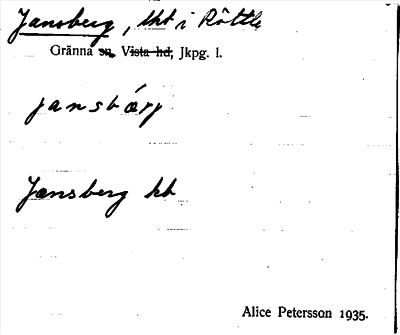 Jansberg, lht i Röttle
Gränna sn, Vista hd, Jkpg. l.
jansbärj
Jansberg ht
Alice Petersson 1935.